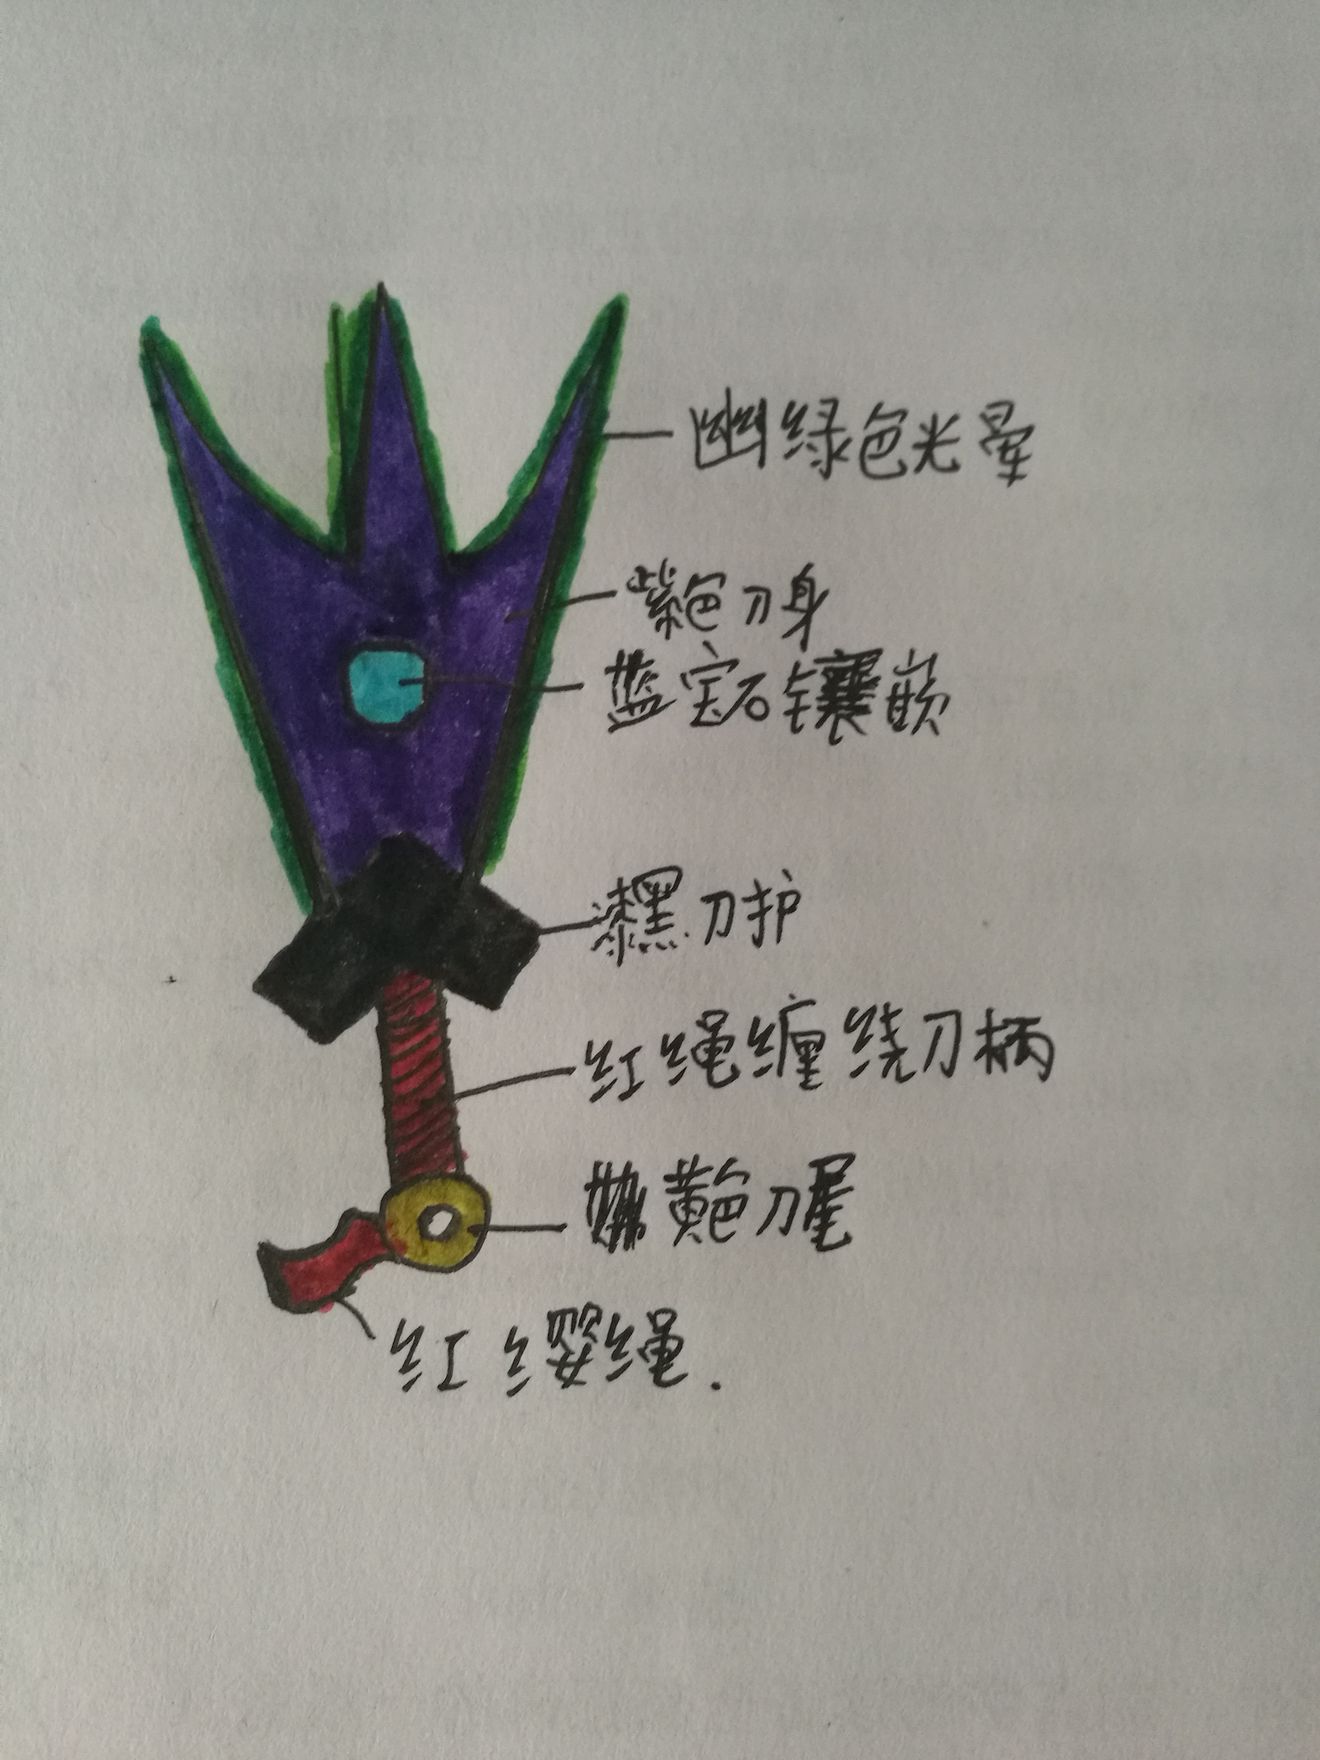 幽绿色光晕
紫色刀身
蓝宝石镶嵌
漆黑刀护
红绳缠绕刀柄
黄色刀尾
红缨绳.